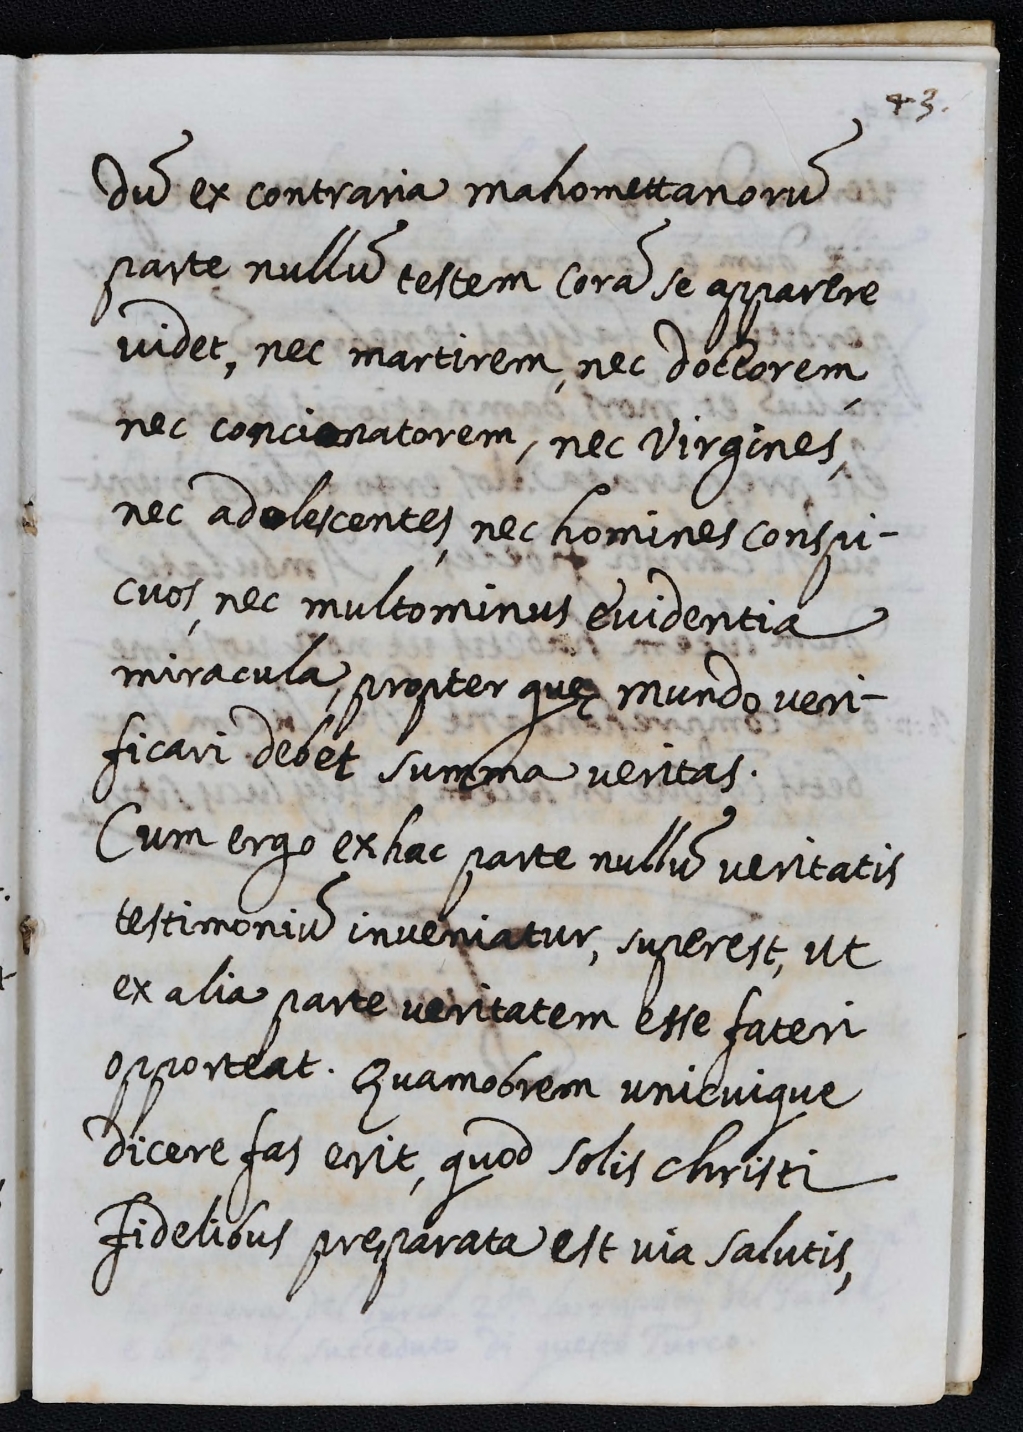 43.
dū ex contraria mahomettanorū
parte nullū testem corā se apparere
videt, nec martirem, nec doctorem,
nec concionatorem, nec Virgines,
nec adolescentes, nec homines conspi-
cuos, nec multominus evidentia
miracula, propter quę mundo veri-
ficari debet summa veritas.
Cum ergo ex hac parte nullū veritatis
testimoniū inveniatur, superest, ut
ex alia parte veritatem esse fateri
opporteat. Quamobrem unicuique
dicere fas erit, quod solis christi
Fidelibus pręparata est via salutis,